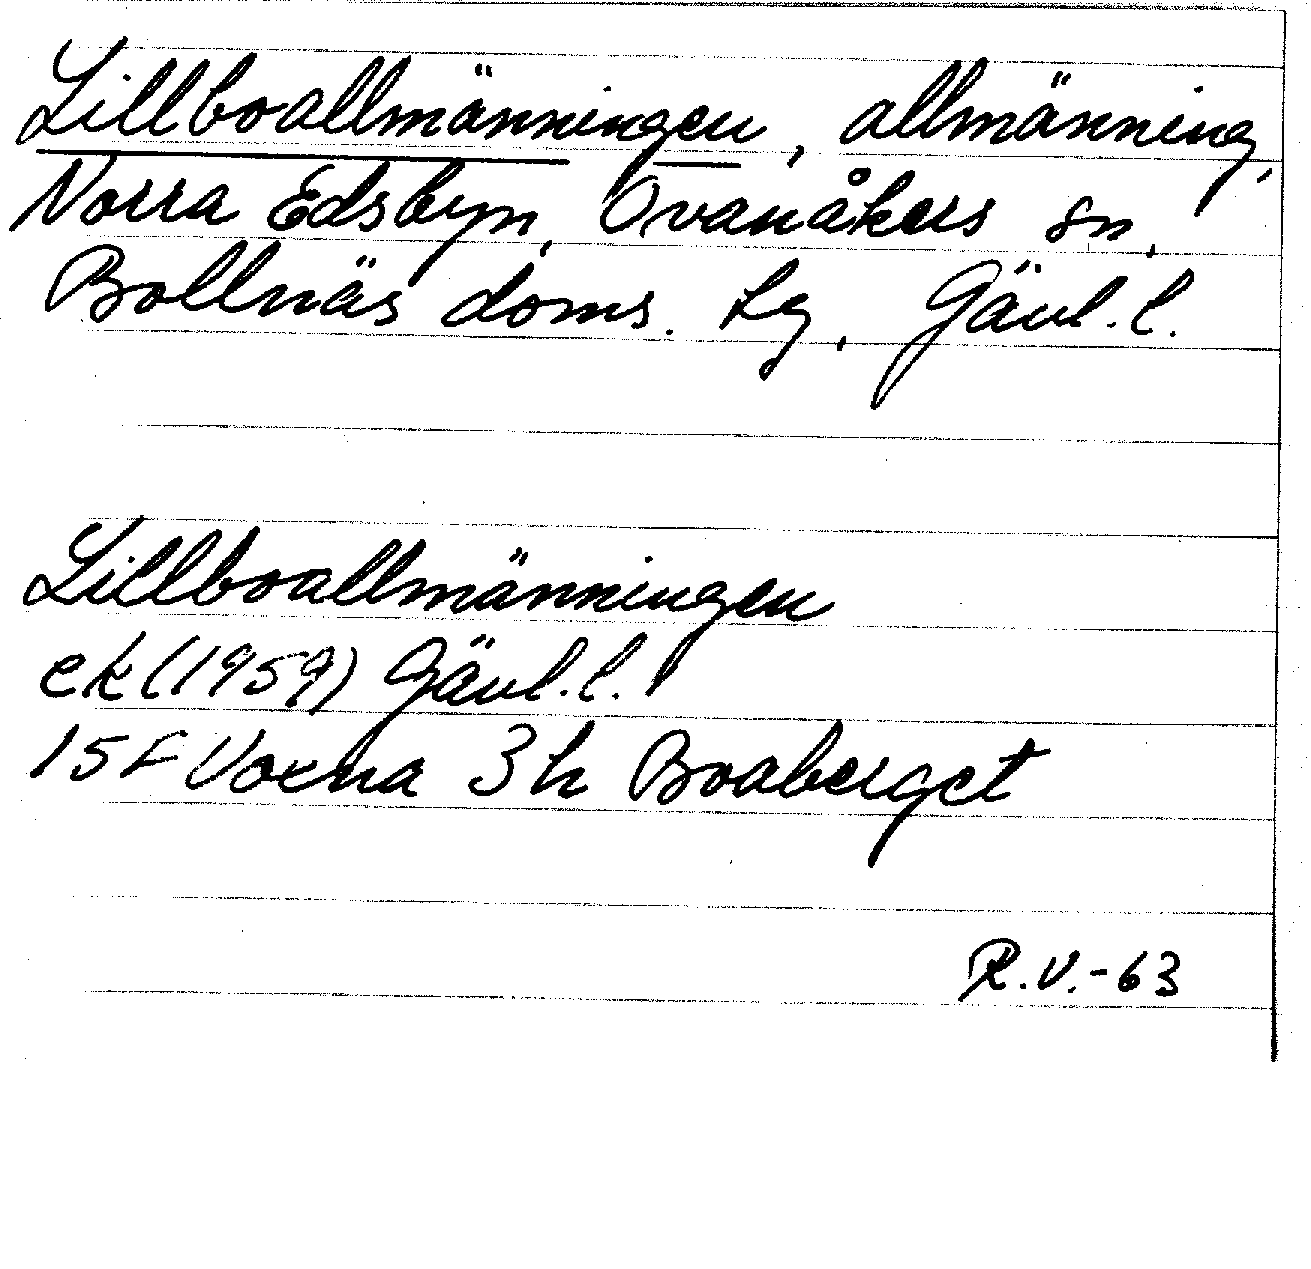 Lillboallmänningen, allmänning,
Norra Edsbyn, Ovanåkers sn,
Bollnäs doms. lg, Gävl. l.
Lillboallmänningen
ek (1959) Gävl. l.
15F Voxna 3h Boaberget
R.V.-63